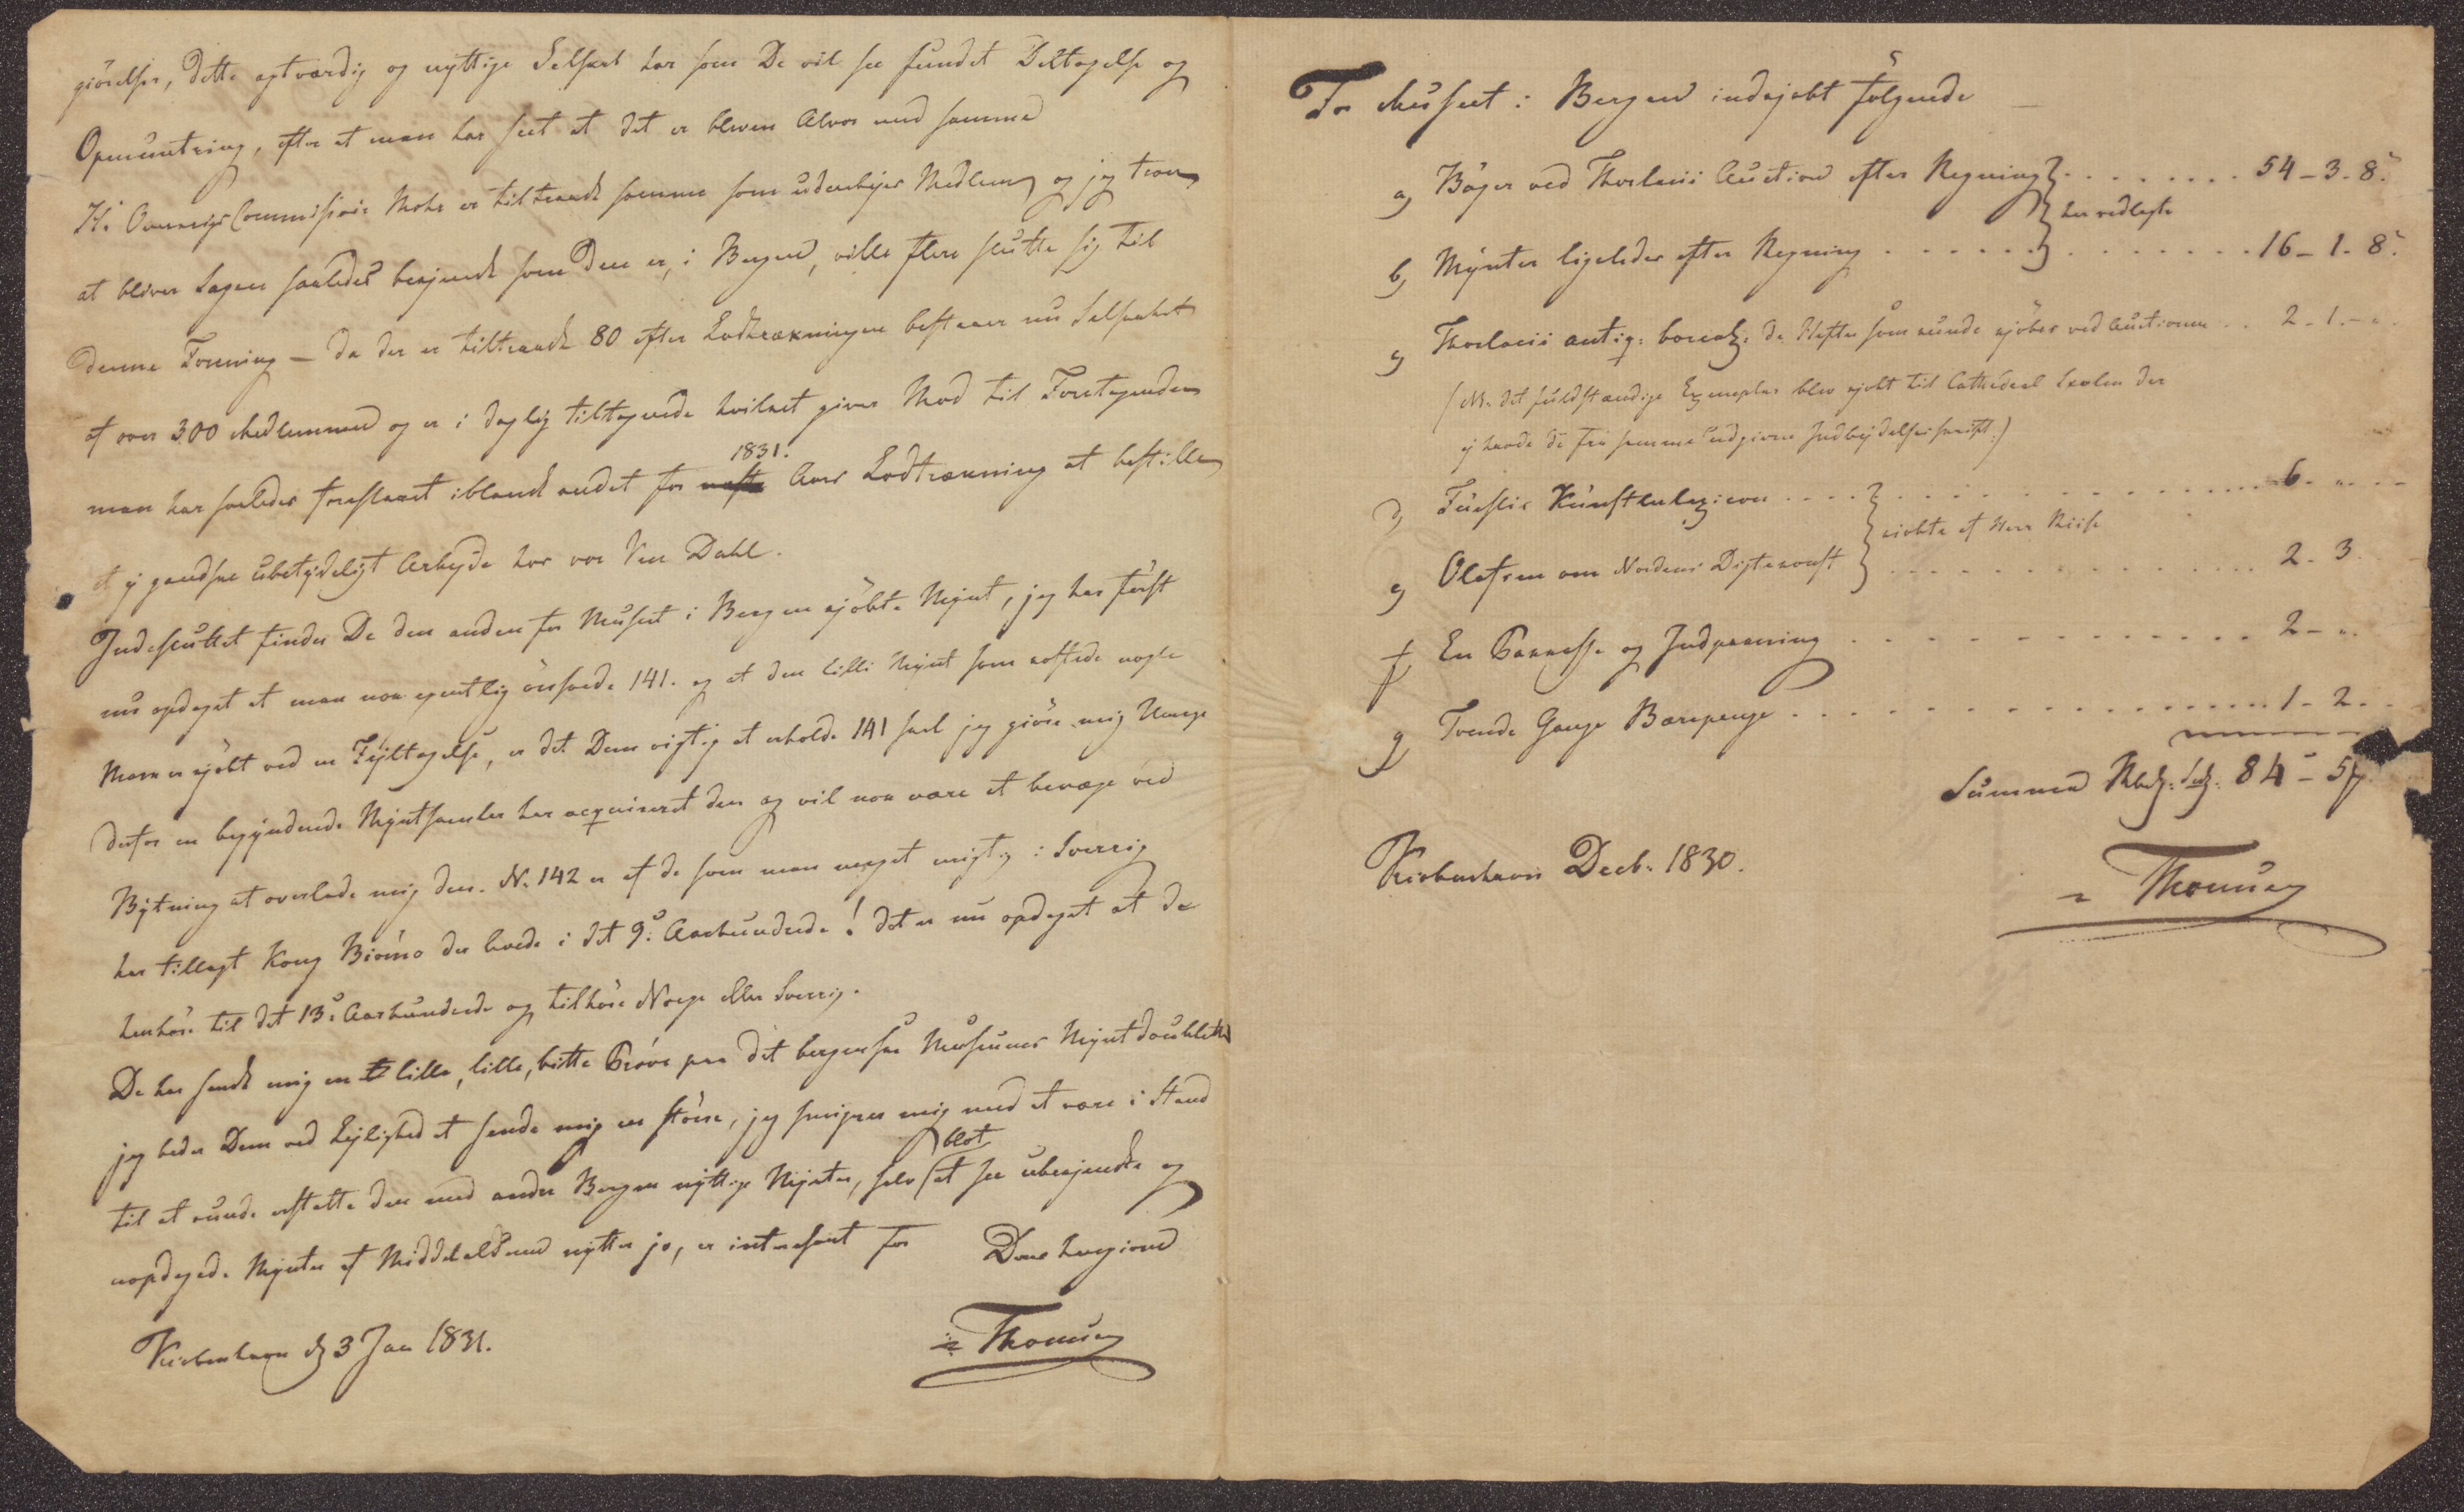 giörelser, dette agtværdig og nyttige Selskab har som De vil see fundet Deeltagelse og
Opmuntring, efter at man har seet at det er bleven Alvor med samme
Hr Overkrigscommissair Mohr er tiltraadt samme som udenbyes Medlem og jeg troer
at bliver Sagen saaledes bekjendt som den er, i Bergen, ville flere slutte sig til
denne Forening — da der er tiltraadt 80 efter Lodtrækningen bestaaer nu Selskabet
af over 300 Medlemmer og er i daglig tiltagende hvilket giver Mod til Foretagender
man har saaledes foreslaaet iblandt andet for næste 1831. Aars Lodtrækning at bestille
et ej gandske ubetydeligt Arbejde hos vor Ven Dahl.
Indesluttet finder De den anden for Museet i Bergen kjöbte Mynt, jeg har först
nu opdaget at man nok egentlig önskede 141. og at den lille Mynt som kostede nogle
Mark er kjöbt ved en Fejltagelse, er det Dem vigtig at erholde 141 skal jeg giöre mig Umage
derfor en begyndende Myntsamler har acquireret den og vil nok være at bevæge ved
Bytning at overlade mig den. No 142 er af de som man meget urigtig i Sverrig
har tillagt Kong Biörno der levede i det 9de Aarhundrede! det er nu opdaget at de
henhöre til det 13de Aarhundrede og tilhöre Norge eller Sverrig.
De har sendt mig en lille, lille, bitte Pröve paa det bergenske Museums Myntdoubletter
jeg beder Dem ved Lejlighed at sende mig en större, jeg smigrer mig med at være i Stand
til at kunde erstatte den med andre Bergen nyttige Mynter, selv blot at see ubekjendte og
uopdagede Mynter af Middelalderen nytter jo, er interessant for Deres hengivne
Kiöbenhavn d 3 Jan 1831.
Thomsen
For Museet i Bergen indkjøbt følgende
a) Böger ved Thorlacii Auction efter Regning . . . . 54-3-8.
her vedlagte
b) Mynter ligeledes efter Regning . . . . 16-1-8.
c) Thorlacii antiq: boreal: de Hefter som kunde kjöbes ved Auctionen . . 2-1.-
(NB. det fuldstændige Exemplar blev kjobt til Cathedral Skolen der
ej havde de fra samme udgivne Indbydelsesskrift.)
d) Fueslis Künstlerlexicon . . . . 6. " -
kiøbte af Herr Riise
e) Olafsen om Nordens Digtekonst . . . . 2-3.
f) En Pakkasse og Indpakning . . . . 2- ".
g) Tvende Gange Bærepenge . . . . 1-2.
Summa Rbd: Sedl: 84-5
Kiøbenhavn Decb: 1830.
Thomsen